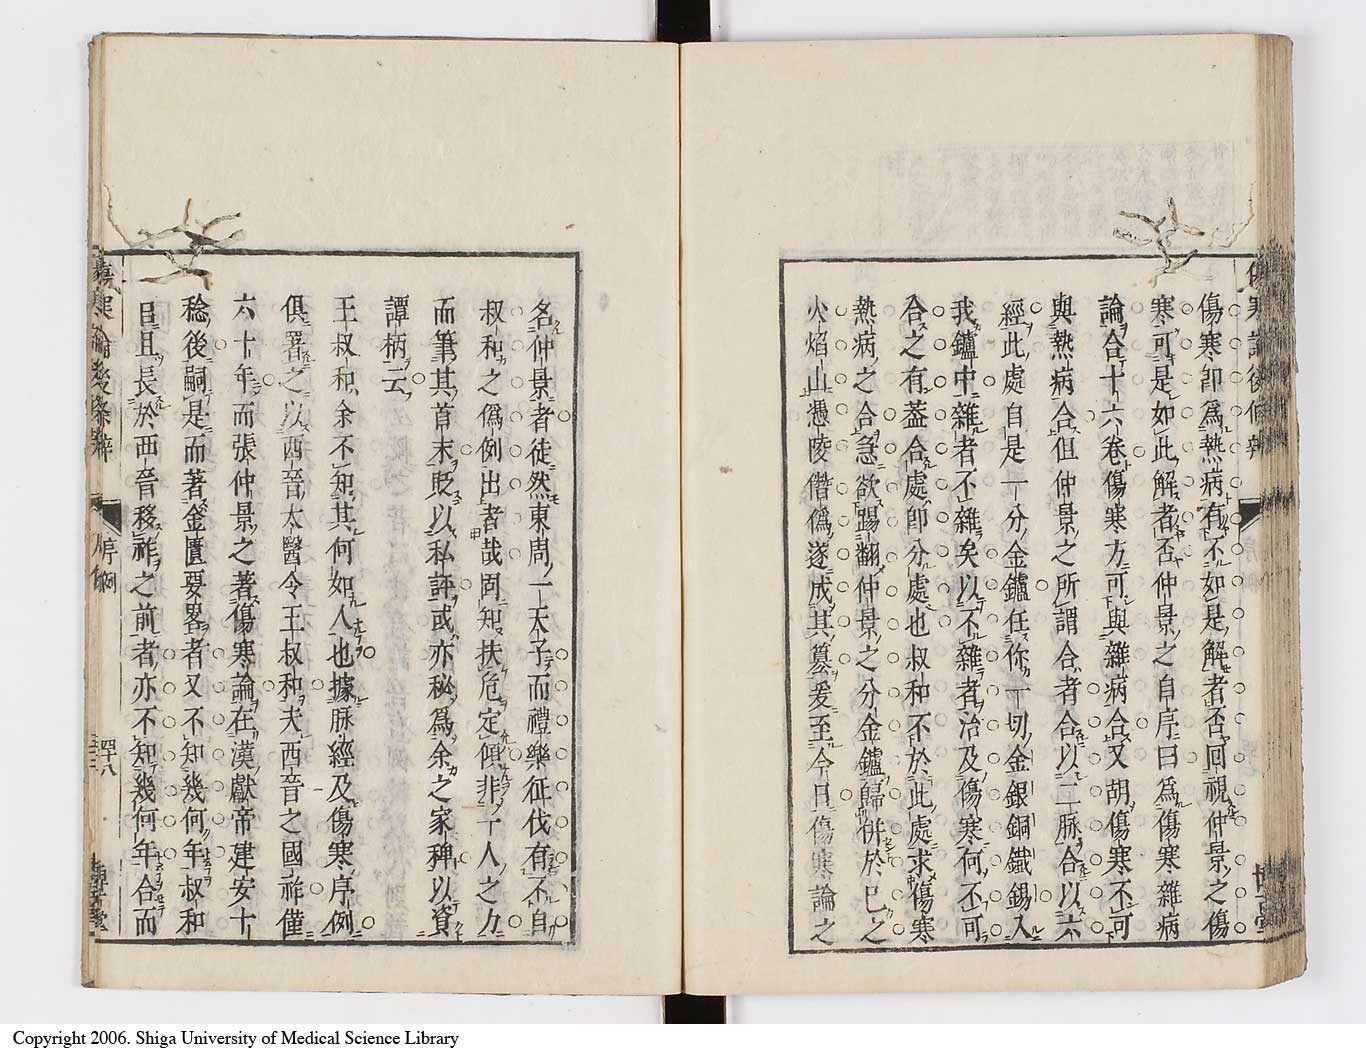 傷寒卽爲熱病有不如是解者否回視仲景之傷
寒可是如此解者否仲景之自序曰爲傷寒雜病
論合十六卷傷寒方可與雜病合又胡傷寒不可
與熱病合但仲景之所謂合者合以二脉合以六
經此處自是一分金鑪任你一切金銀銅鐵錫入
我鑪中雜者不雜矣以不雜者治及傷寒何不可
合之有葢合處卽分處也叔和不於此處求傷寒
熱病之合急欲踢翻仲景之分金鑪歸併於已之
火焰山憑陵僭僞遂成其簒爰至今日傷寒論之
名仲景者徒然東周一天子而禮樂征伐有不自
叔和之僞例出者哉固知扶危定傾非一人之力
而筆其首末貶以私評或亦秘爲余之家稗以資
譚柄云
王叔和余不知其何如人也據脉經及傷寒序例
俱署之以西晉太醫令王叔和夫西晉之國祚僅
六十年而張仲景之著傷寒論在漢獻帝建安十
稔後嗣是而著金匱要畧者又不知幾何年叔和
且且長於西晉移祚之前者亦不知幾何年合而
序例
四十八
Copyright 2006. Shiga University of Medical Science Library